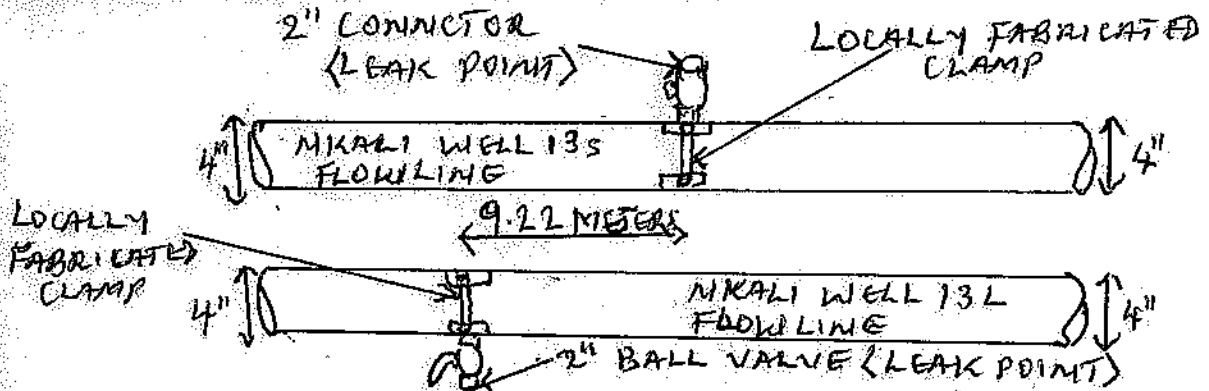 2" CONNCTOR
<LEAK POINT>
LOCALLY FABRICATED
CLAMP
4"
NKALI WELL 13S
FLOWLINE
4"
LOCALLY
FABRICATED
CLAMP
9.22 METERS
4"
NKALI WELL 13L
FLOWLINE
4"
2" BALL VALVE <LEAK POINT>